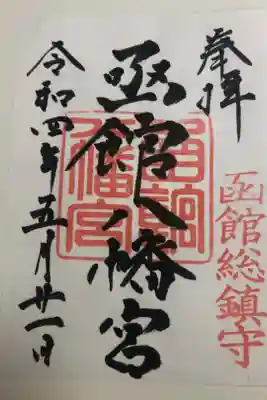 奉拝
函館総鎮守
函館八幡宮
函館八幡宮
令和四年五月廿一日